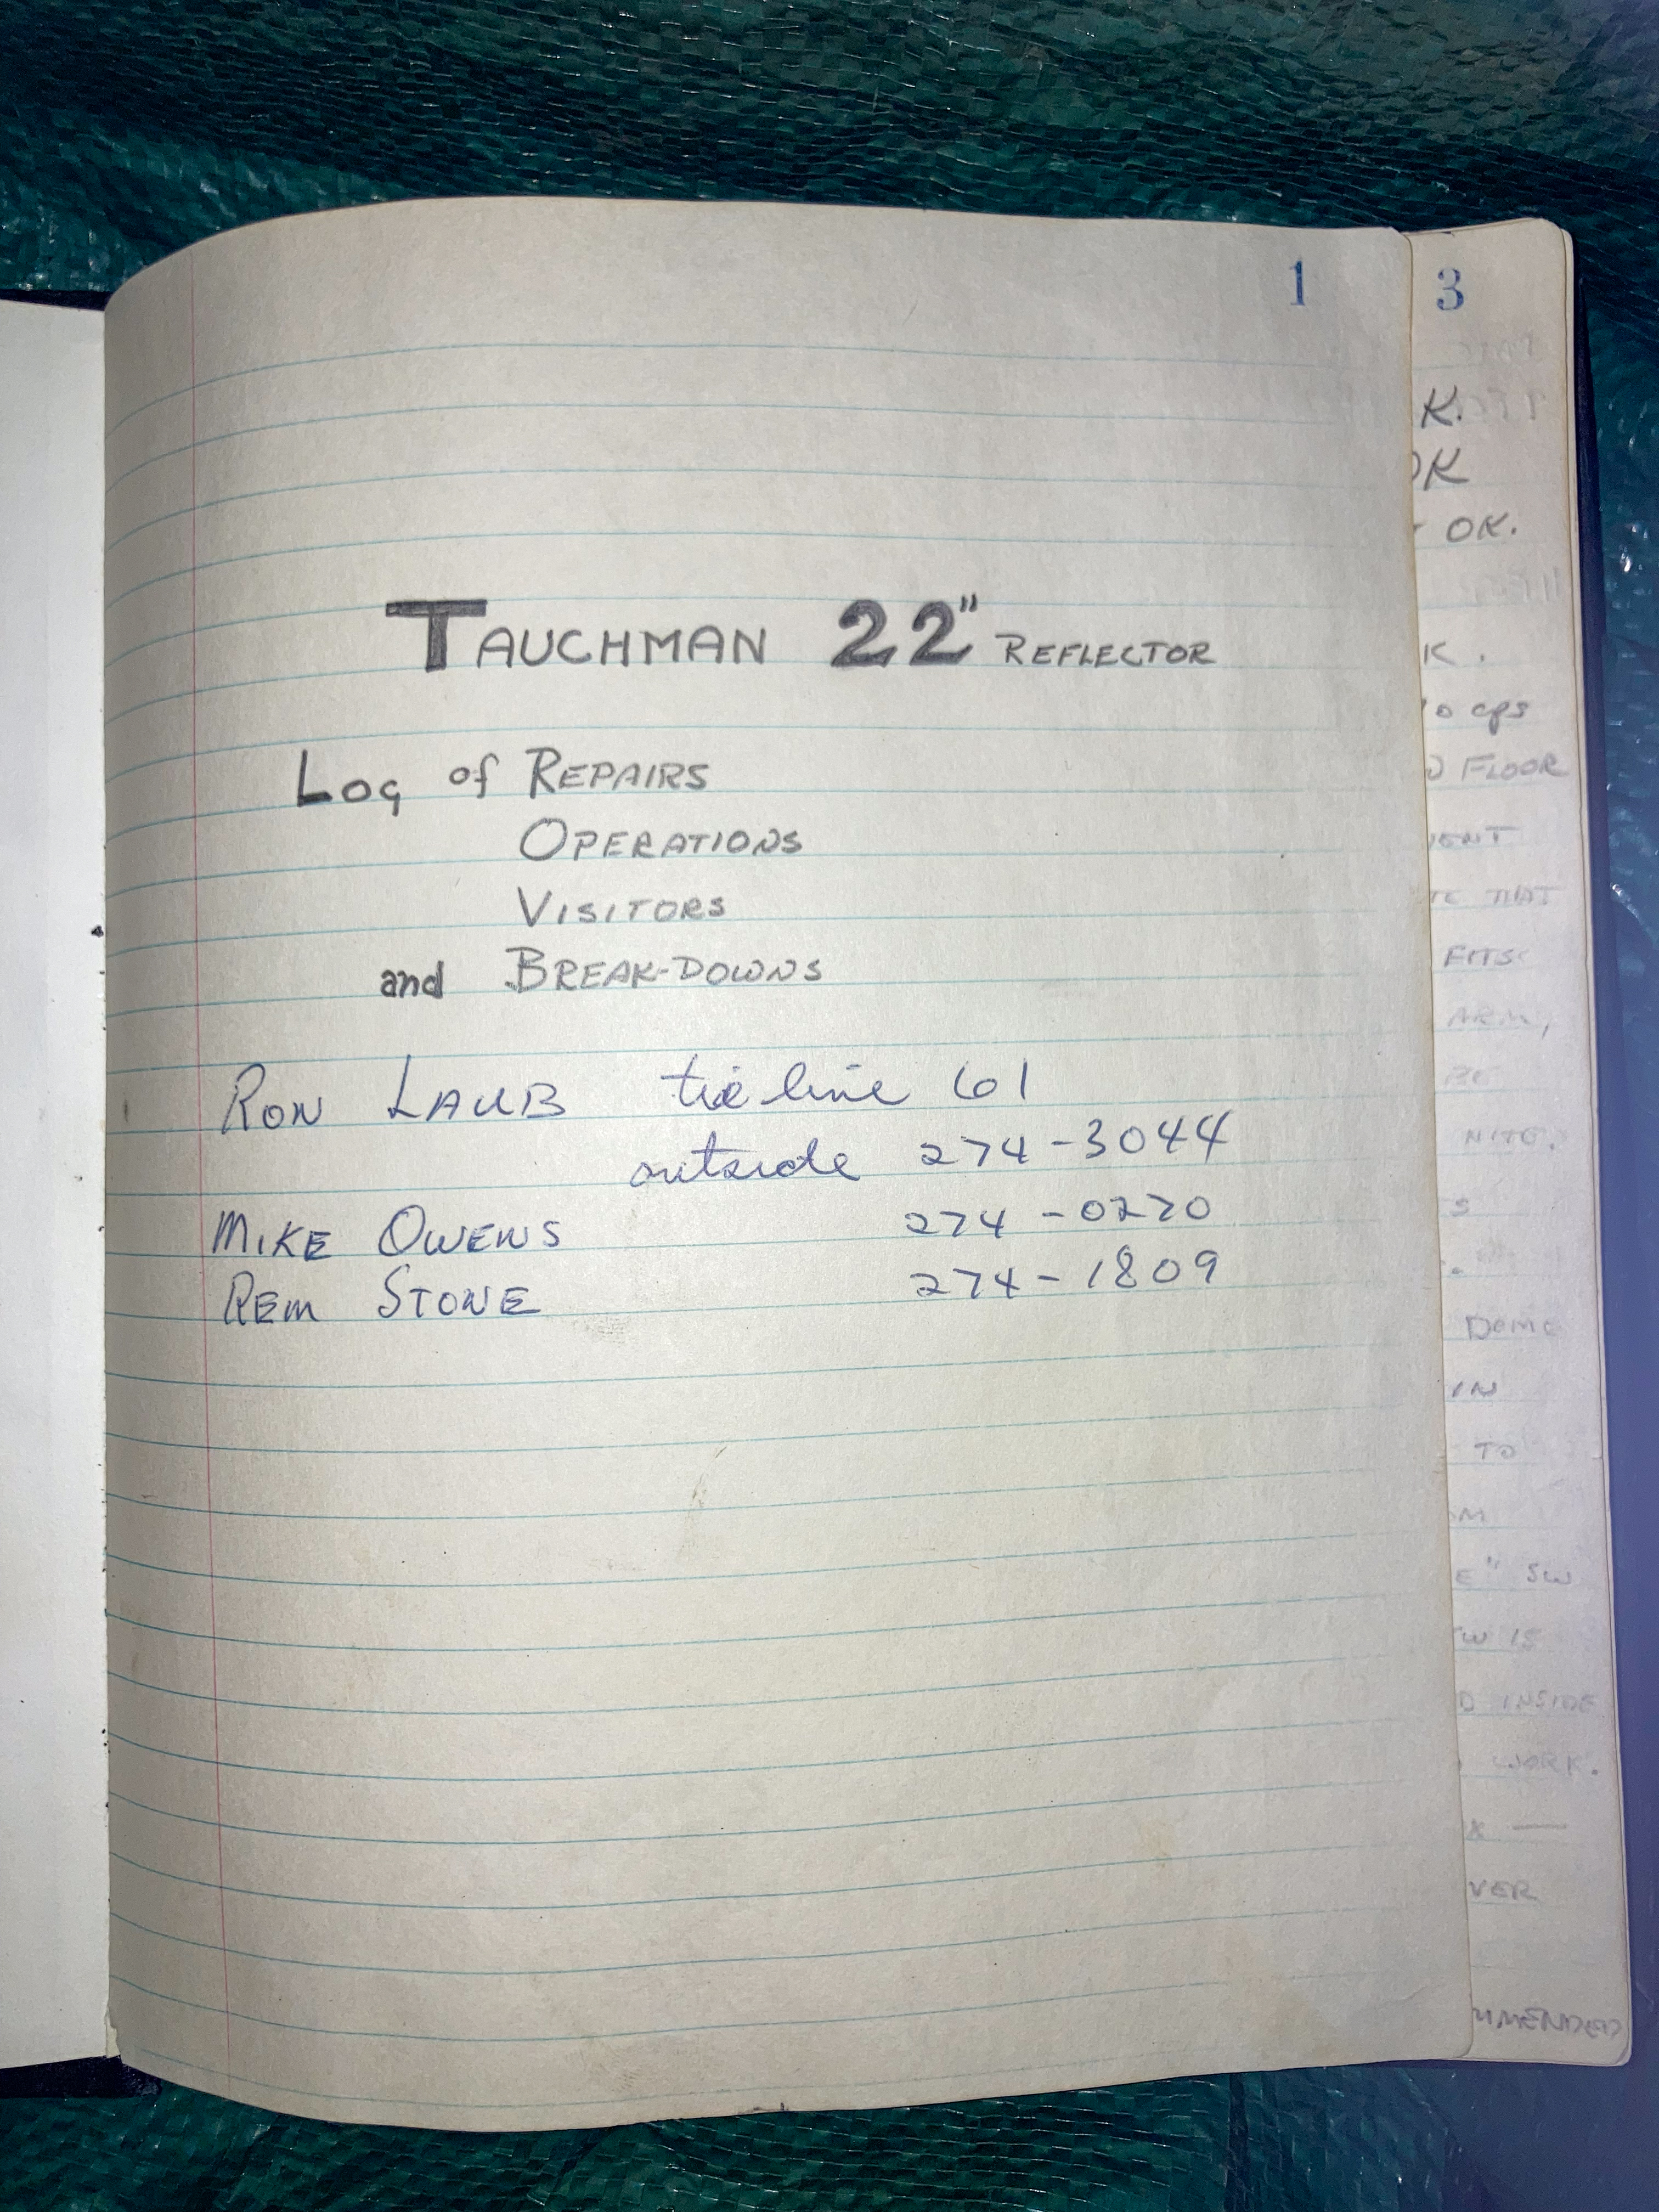 1
TAUCHMAN 22" REFLECTOR
LOG of REPAIRS
OPERATIONS
VISITORS
and BREAK-DOWNS
RON LAUB tie line 61
outside 274-3044
MIKE OWENS 274-0270
REM STONE 274-1809
3
K.
OK
OK.
K.
cps
FLOOR
THAT
FITS
ARM,
BE
NITE.
S
DOME
IN
TO
E" SW
SW IS
D INSIDE
WORK.
VER
MMENDED